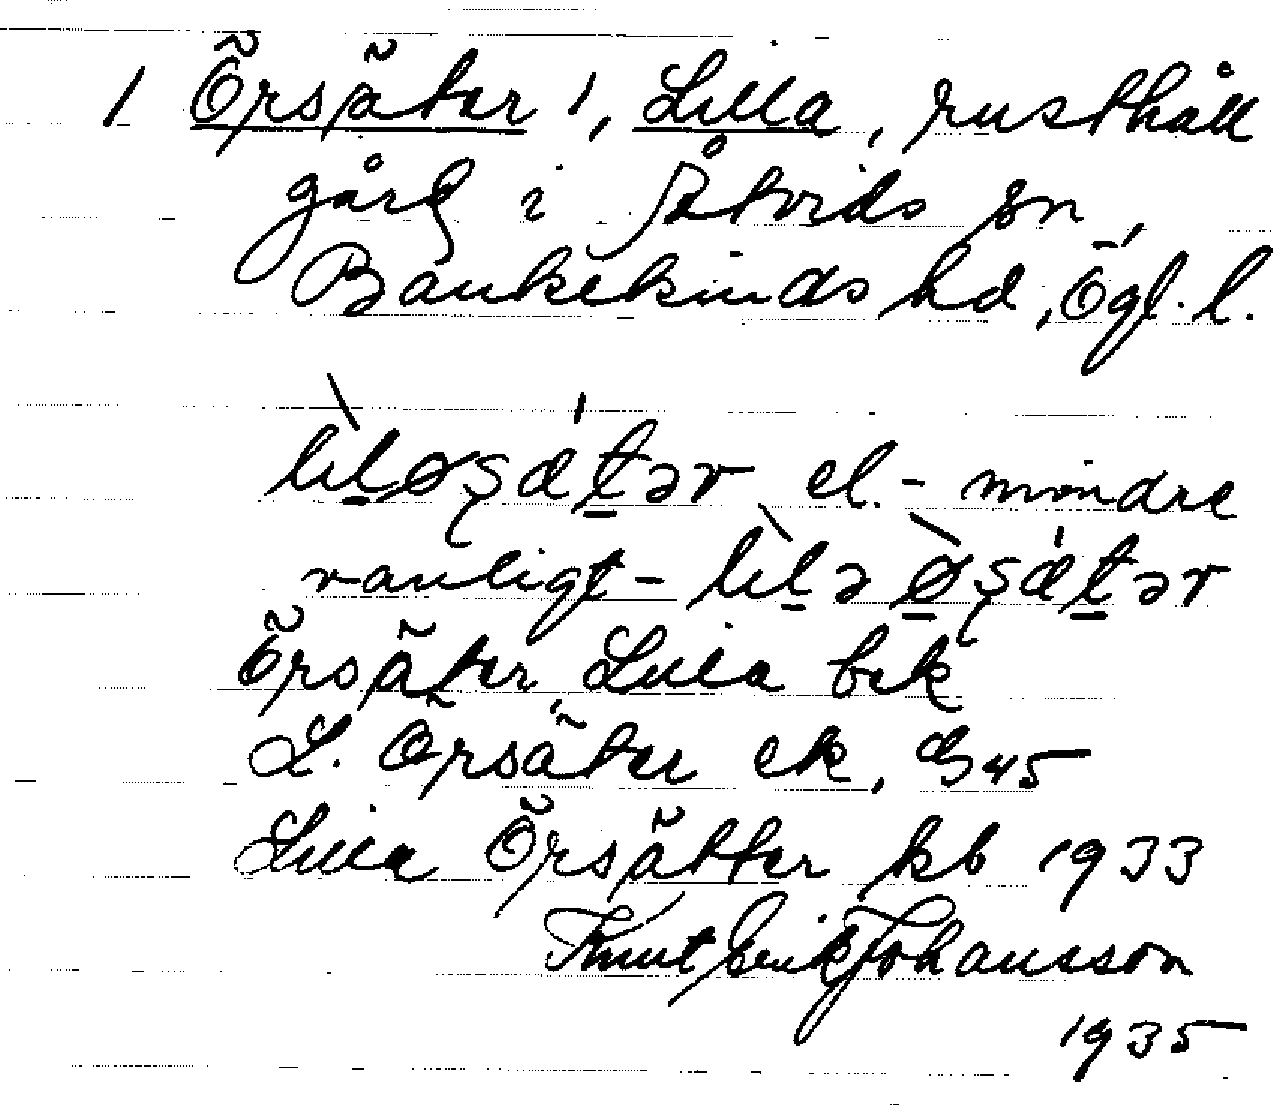 1 Örsäter 1, Lilla, rusthåll
gård i Åtvids sn,
Bankekinds hd, Ögl. l.
lìḷøʂǽṯər el. - mindre
vanligt - lìḻə ø̱̀ʂǽṯər
Örsäter, Lilla bek
L. Örsäter ek, G 45
Lilla Örsätter kb 1933
Knut Erik Johansson
1935